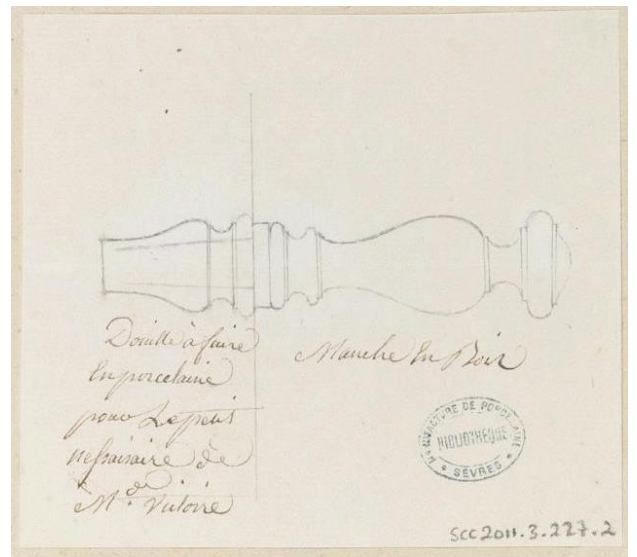 Douille à faire
En porcelaine
pour Le petit
nessaisaire de
M.de Victoire
Manche En Bois
MANUFACTURE DE PORCELAINE
BIBLIOTHEQUE
SÈVRES
SCC2011.3.227.2